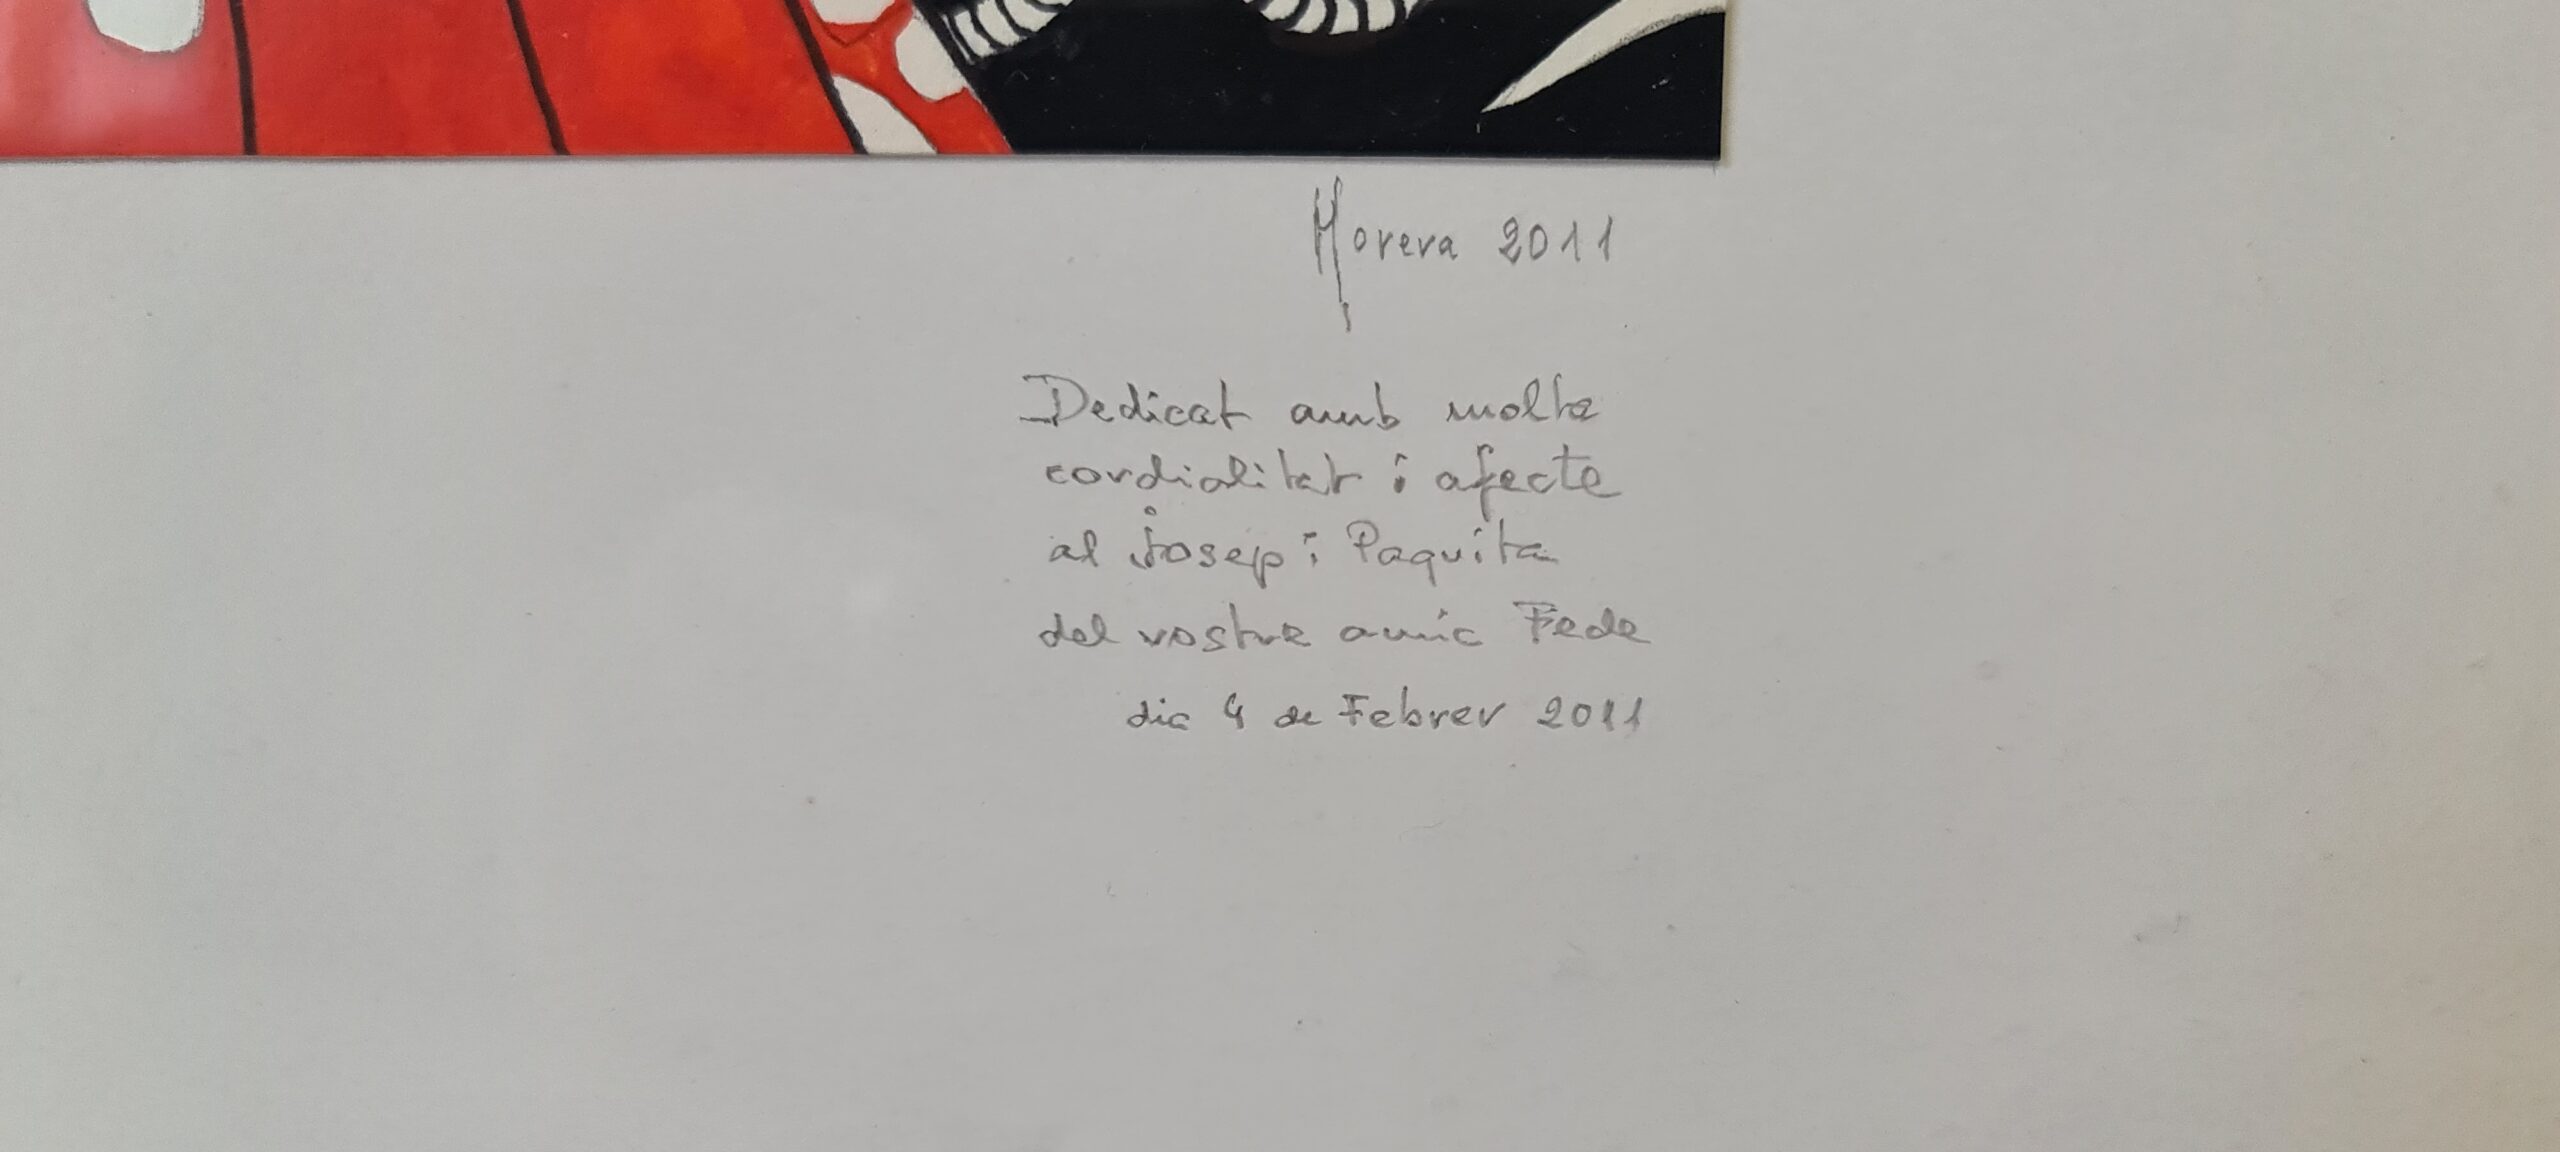 Morera 2011
Dedicat amb molta
cordialitat i afecte
al Josep i Paquita
del vostre amic Fede
dia 4 de Febrer 2011